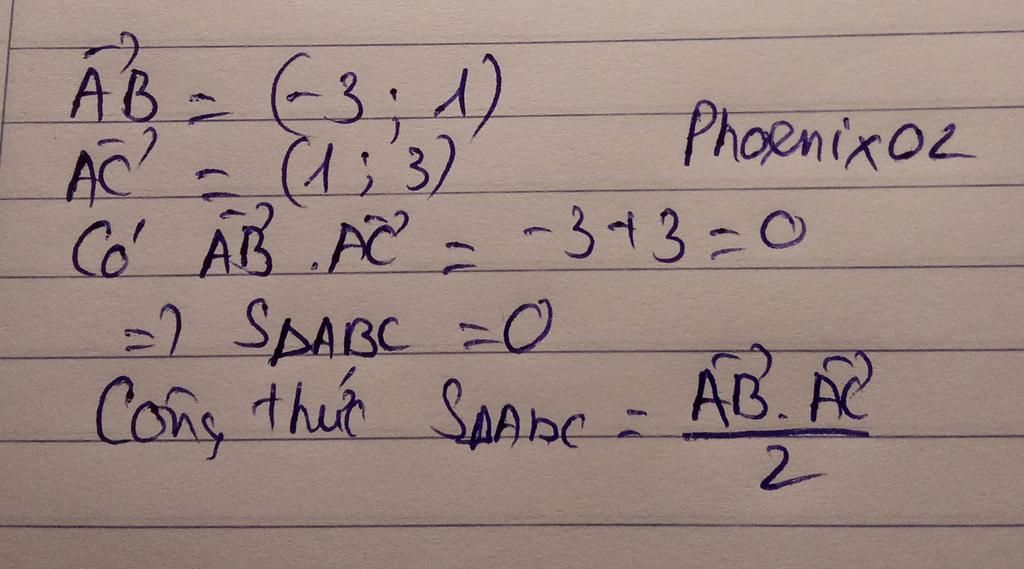 AB→ = (-3; 1)
AC→ = (1; 3)
Phoenix02
Có AB→ . AC→ = -3+3=0
=> SΔABC = 0
Công thức SΔABC = AB→ . AC→ / 2